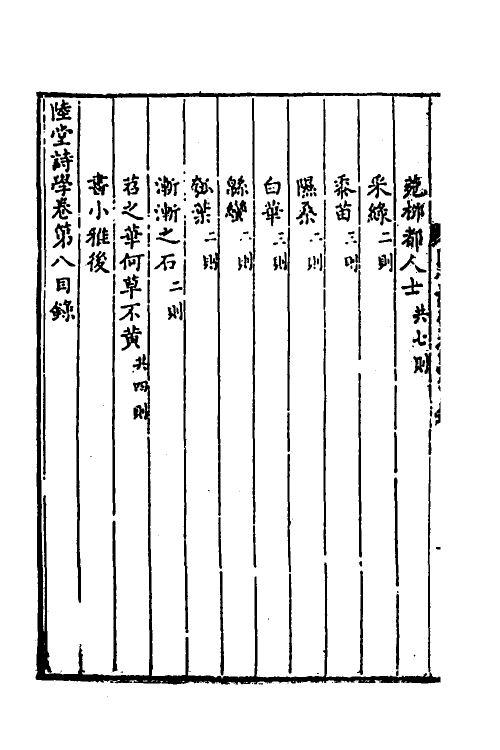 菀柳都人士共七則
采綠二則
黍苗三則
隰桑二則
白華三則
緜蠻二則
瓠葉二則
漸漸之石二則
苕之華何草不黃共四則
書小雅後
陸堂詩學卷第八目錄